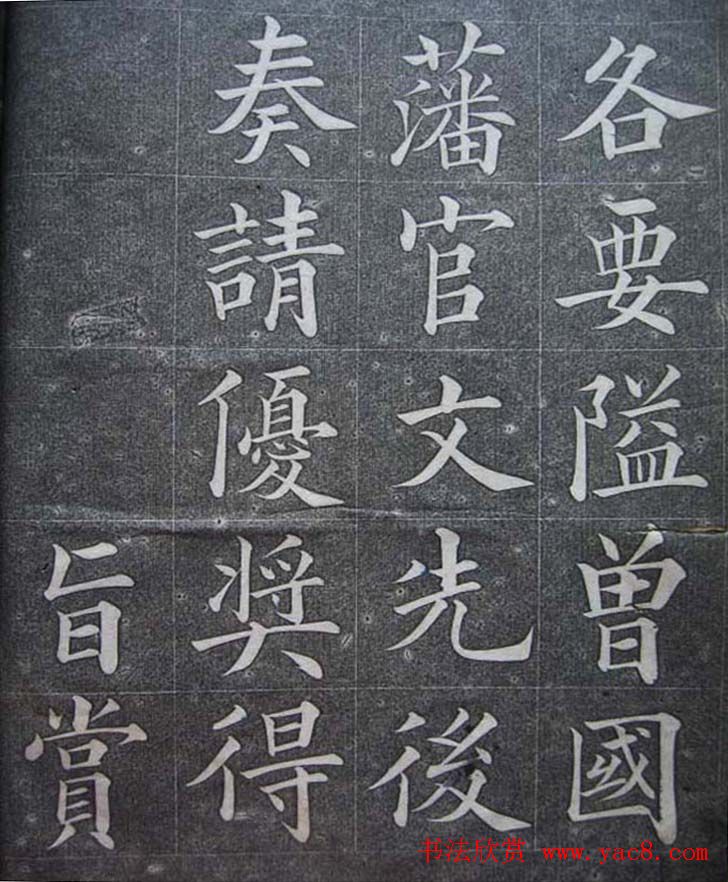 各要隘曾國
藩官文先後
奏請優奖得
旨賞
书法欣赏 www.yac8.com